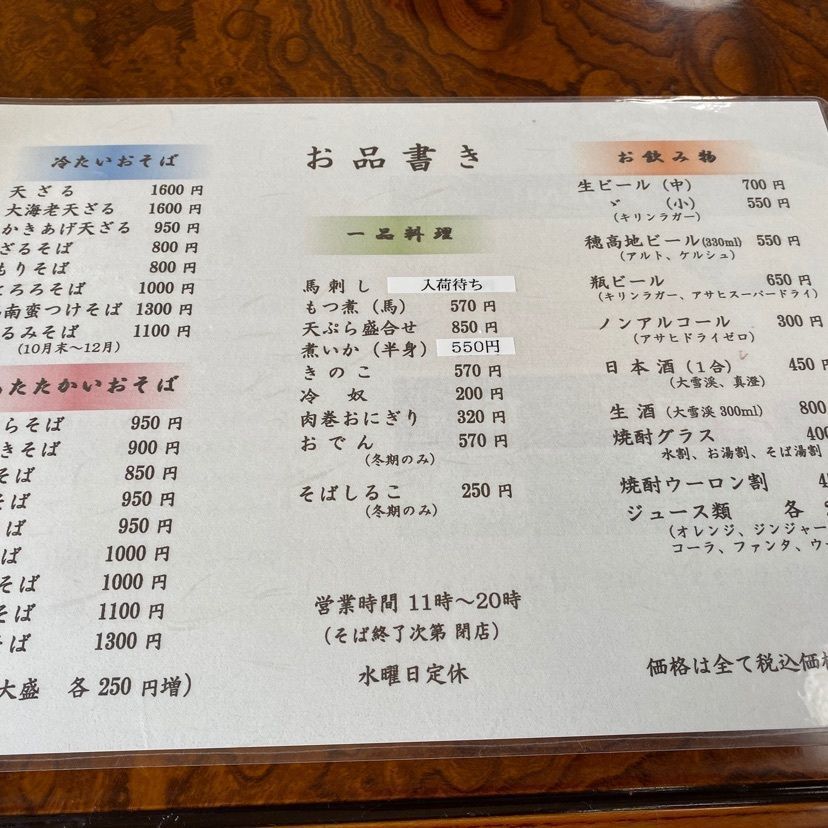 お品書き
冷たいおそば
天ざる 1600円
大海老天ざる 1600円
かきあげ天ざる 950円
ざるそば 800円
もりそば 800円
とろろそば 1000円
南蛮つけそば 1300円
るみそば 1100円
(10月末〜12月)
あたたかいおそば
らそば 950円
きそば 900円
そば 850円
そば 950円
ば 950円
ば 1000円
そば 1000円
そば 1100円
そば 1300円
大盛 各250円増)
一品料理
馬刺し 入荷待ち
もつ煮(馬) 570円
天ぷら盛合せ 850円
煮いか(半身) 550円
きのこ 570円
冷奴 200円
肉巻おにぎり 320円
おでん 570円
(冬期のみ)
そばしるこ 250円
(冬期のみ)
営業時間 11時〜20時
(そば終了次第 閉店)
水曜日定休
お飲み物
生ビール(中) 700円
〃 (小) 550円
(キリンラガー)
穂高地ビール(330ml) 550円
(アルト、ケルシュ)
瓶ビール 650円
(キリンラガー、アサヒスーパードライ)
ノンアルコール 300円
(アサヒドライゼロ)
日本酒(1合) 450円
(大雪渓、真澄)
生酒(大雪渓 300ml) 800
焼酎グラス 400
水割、お湯割、そば湯割
焼酎ウーロン割
ジュース類 各
(オレンジ、ジンジャー
コーラ、ファンタ、ウー
価格は全て税込価格